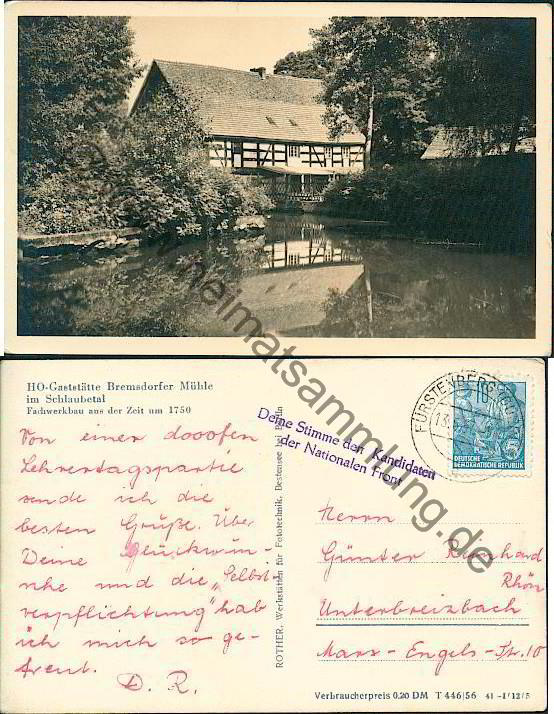 www.heimatsammlung.de
HO-Gaststätte Bremsdorfer Mühle
im Schlaubetal
Fachwerkbau aus der Zeit um 1750
Von einer dooofen
Lehrertagspartie
sende ich die
besten Grüße. Über
Deine Glückwün-
sche und die "Selbst
verpflichtung" hab
ich mich so ge-
freut.
D. R.
ROTHER, Werkstätten für Fototechnik, Bestensee bei Berlin
Deine Stimme den Kandidaten
der Nationalen Front
FÜRSTENBERG
10
DEUTSCHE
DEMOKRATISCHE REPUBLIK
Herrn
Günter Reinhard
Rhön
Unterbreizbach
Marx-Engels-Str. 10
Verbraucherpreis 0,20 DM T 446/56 41